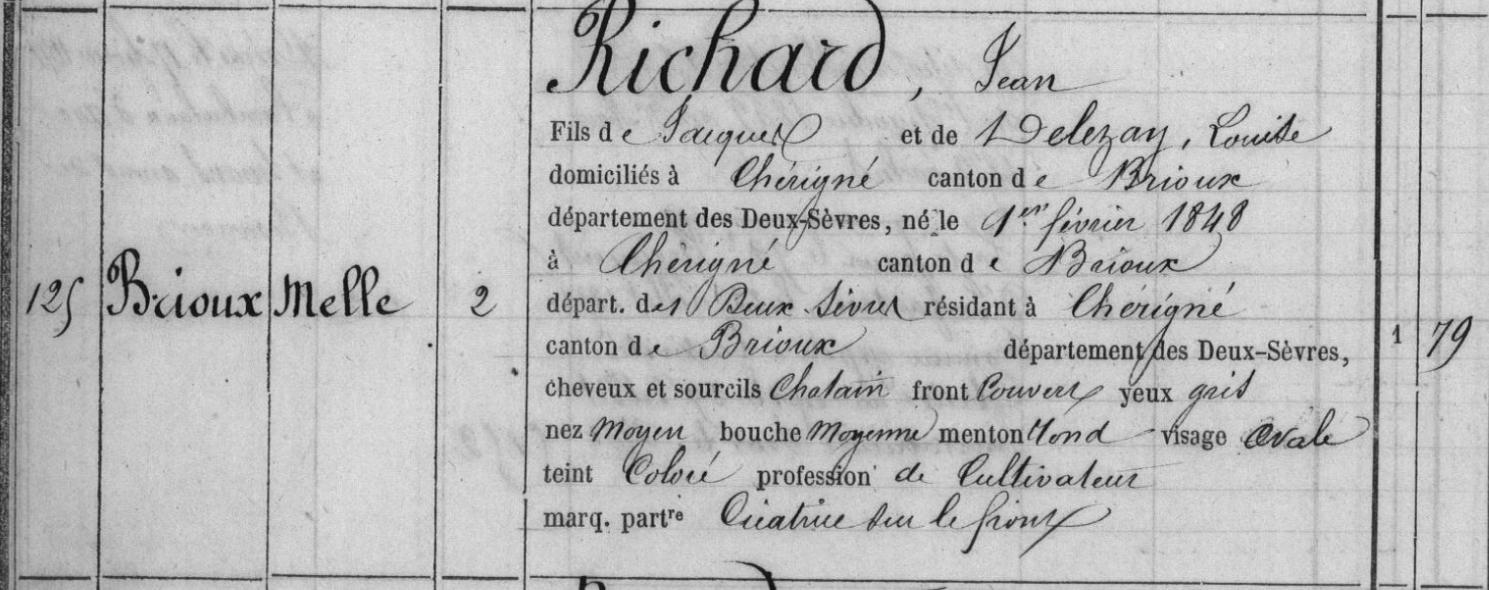 Richard, Jean
Fils de Jacques et de Delezay, Louise
domiciliés à Chérigné canton de Brioux
département des Deux-Sèvres, né le 1er février 1848
à Chérigné canton de Brioux
125 Brioux Melle 2 départ. des Deux Sèvres résidant à Chérigné
canton de Brioux département des Deux-Sèvres, 1 79
cheveux et sourcils Chatain front Couvert yeux gris
nez Moyen bouche Moyenne menton rond visage Ovale
teint Coloré profession de Cultivateur
marq. partre Cicatrice sur le front